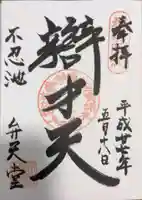 奉拝
平成廿七年
五月十八日
辯才天
不忍池
弁天堂